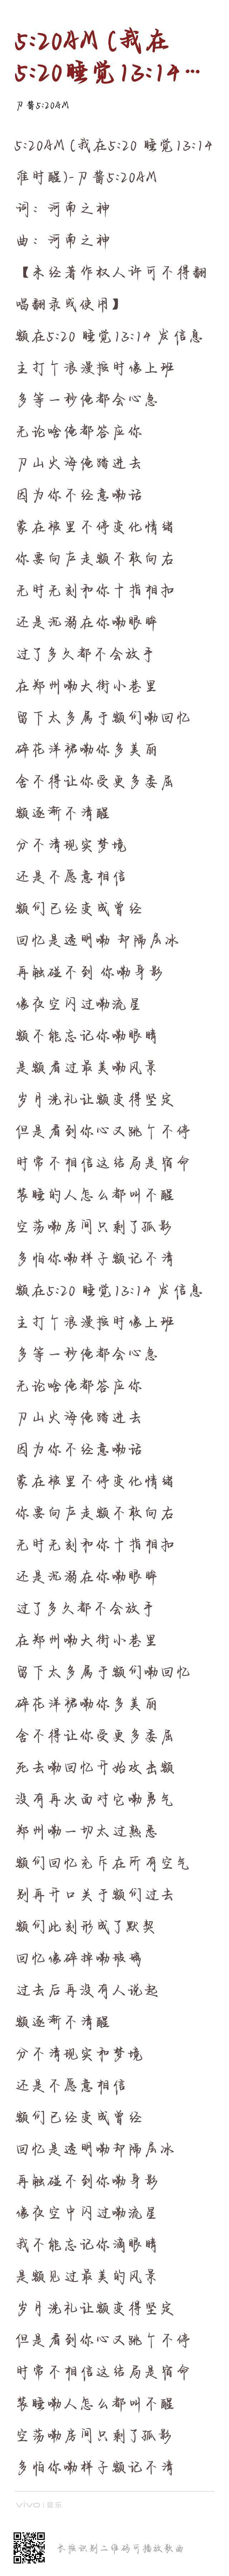 5:20AM (我在
5:20睡觉13:14…
刀酱5:20AM
5:20AM (我在5:20 睡觉13:14
准时醒)-刀酱5:20AM
词：河南之神
曲：河南之神
【未经著作权人许可不得翻
唱翻录或使用】
额在5:20 睡觉13:14 发信息
主打个浪漫按时像上班
多等一秒俺都会心急
无论啥俺都答应你
刀山火海俺踏进去
因为你不经意嘞话
蒙在被里不停变化情绪
你要向左走额不敢向右
无时无刻和你十指相扣
还是沉溺在你嘞眼眸
过了多久都不会放手
在郑州嘞大街小巷里
留下太多属于额们嘞回忆
碎花洋裙嘞你多美丽
舍不得让你受更多委屈
额逐渐不清醒
分不清现实梦境
还是不愿意相信
额们已经变成曾经
回忆是透明嘞 却隔层冰
再触碰不到 你嘞身影
像夜空闪过嘞流星
额不能忘记你嘞眼睛
是额看过最美嘞风景
岁月洗礼让额变得坚定
但是看到你心又跳个不停
时常不相信这结局是宿命
装睡的人怎么都叫不醒
空荡嘞房间只剩了孤影
多怕你嘞样子额记不清
额在5:20 睡觉13:14 发信息
主打个浪漫按时像上班
多等一秒俺都会心急
无论啥俺都答应你
刀山火海俺踏进去
因为你不经意嘞话
蒙在被里不停变化情绪
你要向左走额不敢向右
无时无刻和你十指相扣
还是沉溺在你嘞眼眸
过了多久都不会放手
在郑州嘞大街小巷里
留下太多属于额们嘞回忆
碎花洋裙嘞你多美丽
舍不得让你受更多委屈
死去嘞回忆开始攻击额
没有再次面对它嘞勇气
郑州嘞一切太过熟悉
额们回忆充斥在所有空气
别再开口关于额们过去
额们此刻形成了默契
回忆像碎掉嘞玻璃
过去后再没有人说起
额逐渐不清醒
分不清现实和梦境
还是不愿意相信
额们已经变成曾经
回忆是透明嘞却隔层冰
再触碰不到你嘞身影
像夜空中闪过嘞流星
我不能忘记你滴眼睛
是额见过最美的风景
岁月洗礼让额变得坚定
但是看到你心又跳个不停
时常不相信这结局是宿命
装睡嘞人怎么都叫不醒
空荡嘞房间只剩了孤影
多怕你嘞样子额记不清
vivo | 音乐
长按识别二维码可播放歌曲